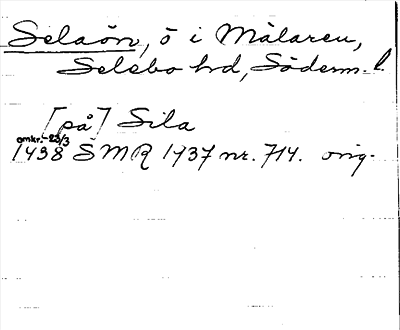 Selaön, ö i Mälaren,
Selebo hd, Söderm. l.
[på] Sila
omkr. 23/3
1438 SMR 1437 nr. 714. orig.